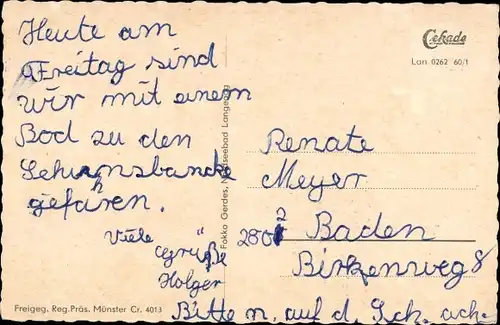 Heute am
Freitag sind
wir mit einem
Bod zu den
Sehunsbancke
gefahren.
Viele
Grüße
Holger
Cekade
Lan 0262 60/1
Renate
Meyer
2807 Baden
Birkenweg 8
Bitte n. auf d. Sch. ach.
Fokko Gerdes, Nordseebad Langeoog
Freigeg. Reg.Präs. Münster Cr. 4013